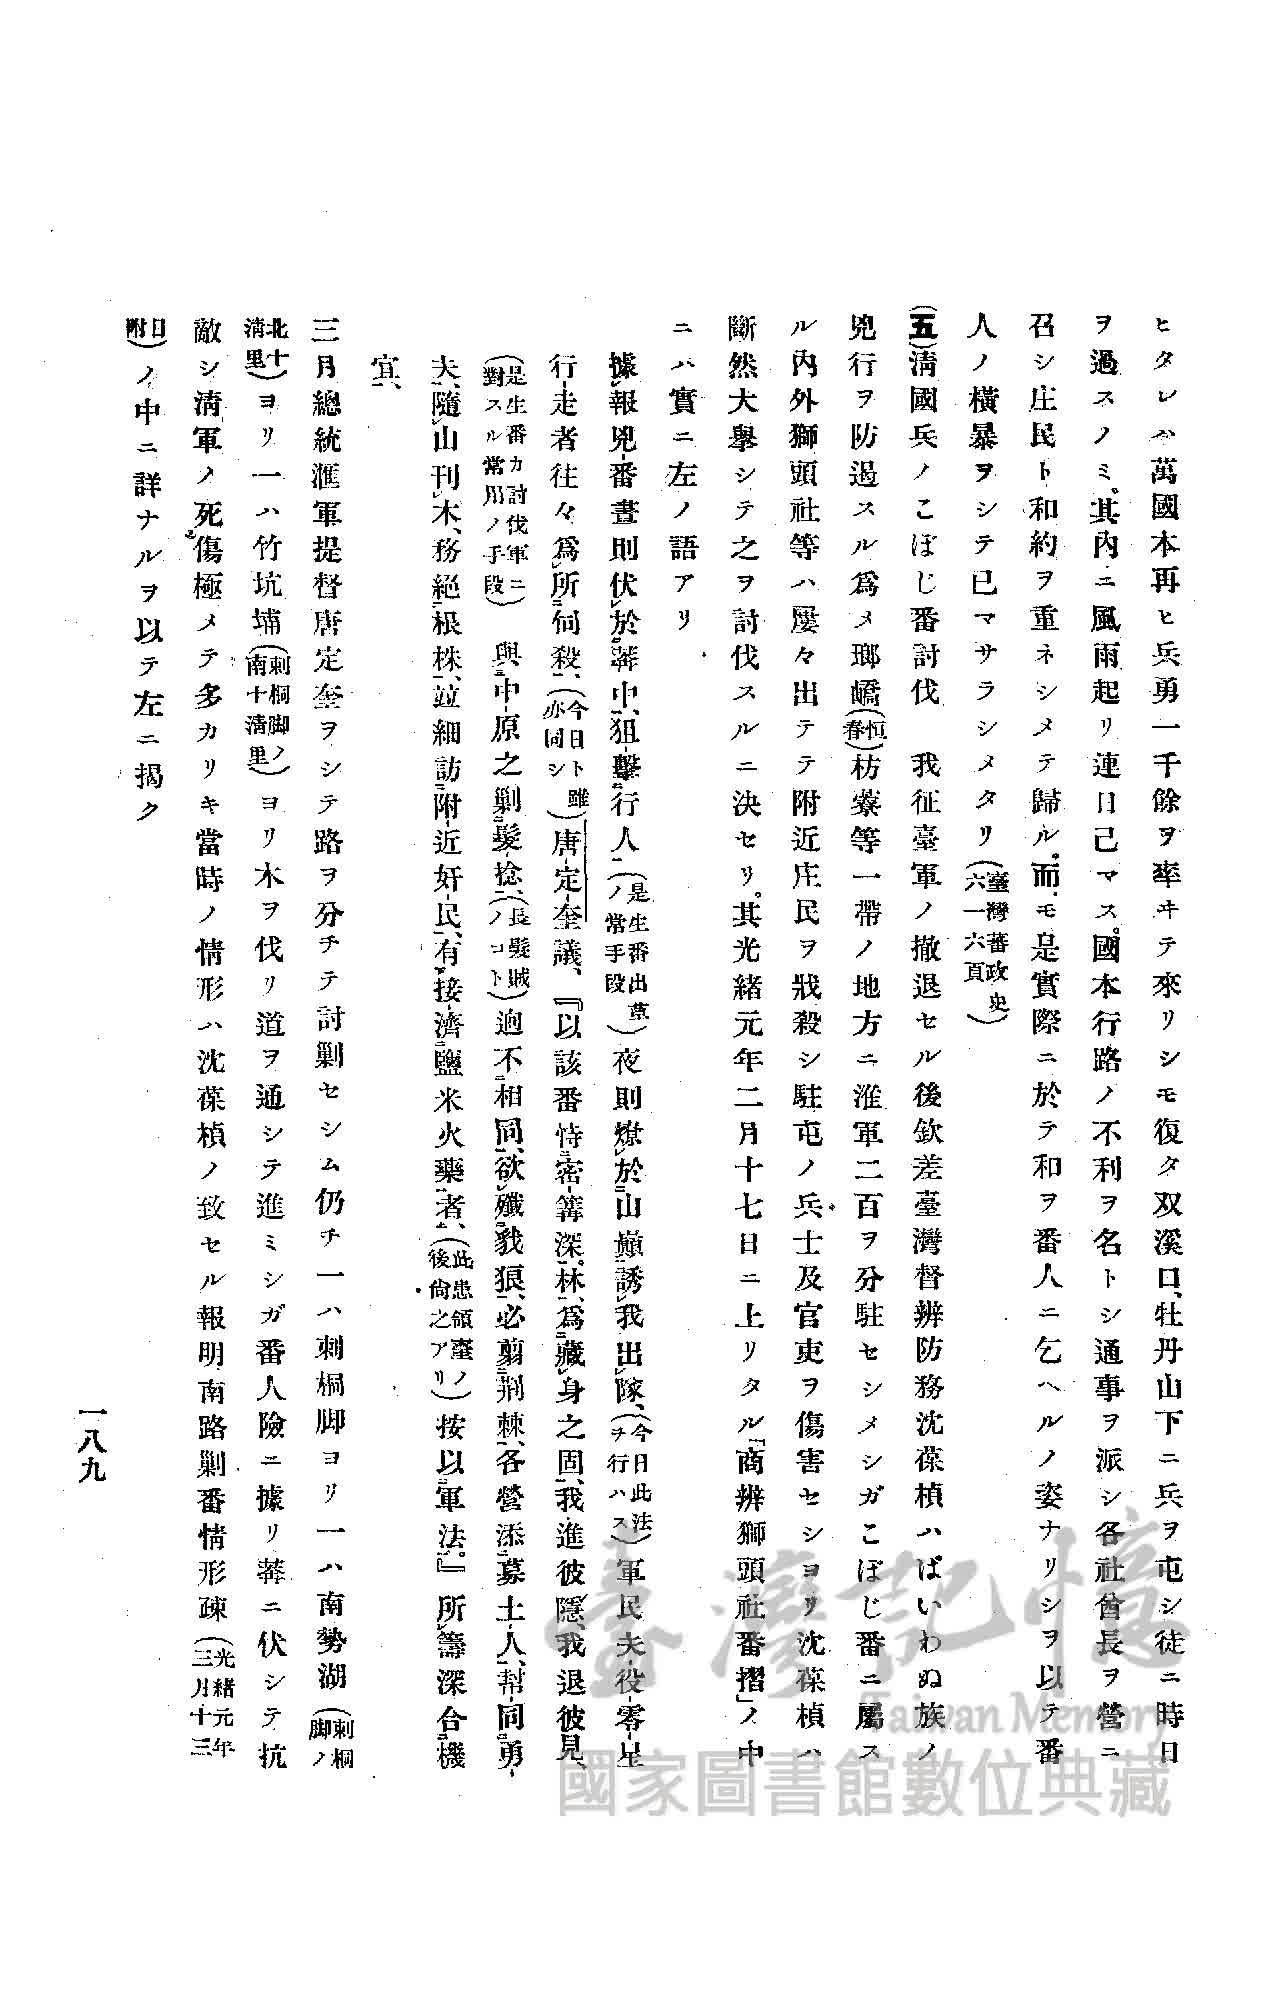 ヒタレハ萬國本再ヒ兵勇一千餘ヲ率ヰテ來リシモ復タ双溪口、牡丹山下ニ兵ヲ屯シ徒ニ時日
ヲ過スノミ。其内ニ風雨起リ連日已マス。國本行路ノ不利ヲ名トシ通事ヲ派シ各社酋長ヲ營ニ
召シ庄民ト和約ヲ重ネシメテ歸ル。而モ是實際ニ於テ和ヲ番人ニ乞ヘルノ姿ナリシヲ以テ番
人ノ橫暴ヲシテ已マサラシメタリ(臺灣蕃政史六一六頁)
(五)淸國兵ノこぼじ番討伐 我征臺軍ノ撤退セル後欽差臺灣督辨防務沈葆楨ハばいわぬ族ノ
兇行ヲ防遏スル爲メ瑯嶠(恒春)枋藔等一帶ノ地方ニ淮軍二百ヲ分駐セシメシガこぼじ番ニ屬ス
ル内外獅頭社等ハ屢々出テテ附近庄民ヲ戕殺シ駐屯ノ兵士及官吏ヲ傷害セシヨリ沈葆楨ハ
斷然大擧シテ之ヲ討伐スルニ決セリ。其光緒元年二月十七日ニ上リタル「商辨獅頭社番摺」ノ中
ニハ實ニ左ノ語アリ
據報兇番晝則伏於菁中、狙擊行人(是生番出草ノ常手段)夜則燎於山巓誘我出隊、(今日此法ヲ行ハス)軍民夫役零星
行走者往々爲所伺殺、(今日ト雖亦同シ)唐定奎議、『以該番恃密篝深林、爲藏身之固、我進彼隱、我退彼見、
(是生番カ討伐軍ニ對スル常用ノ手段)與中原之剿髮捻、(長髮賊ノコト)逈不相同、欲殲豺狼、必翦荆棘、各營添募土人、幇同勇
夫、隨山刊木、務絕根株、竝細訪附近奸民、有接濟鹽米火藥者、(此患領臺ノ後尙之アリ)按以軍法。』所籌深合機
宜、
三月總統滙軍提督唐定奎ヲシテ路ヲ分チテ討剿セシム仍チ一ハ刺桐脚ヨリ一ハ南勢湖(刺桐脚ノ
北十淸里)ヨリ一ハ竹坑埔(刺桐脚ノ南十淸里)ヨリ木ヲ伐リ道ヲ通シテ進ミシガ番人險ニ據リ菁ニ伏シテ抗
敵シ淸軍ノ死傷極メテ多カリキ當時ノ情形ハ沈葆楨ノ致セル報明南路剿番情形疎(光緖元年三月十三
日附)ノ中ニ詳ナルヲ以テ左ニ揭ク
一八九
臺灣記憶
Taiwan Memory
國家圖書館數位典藏